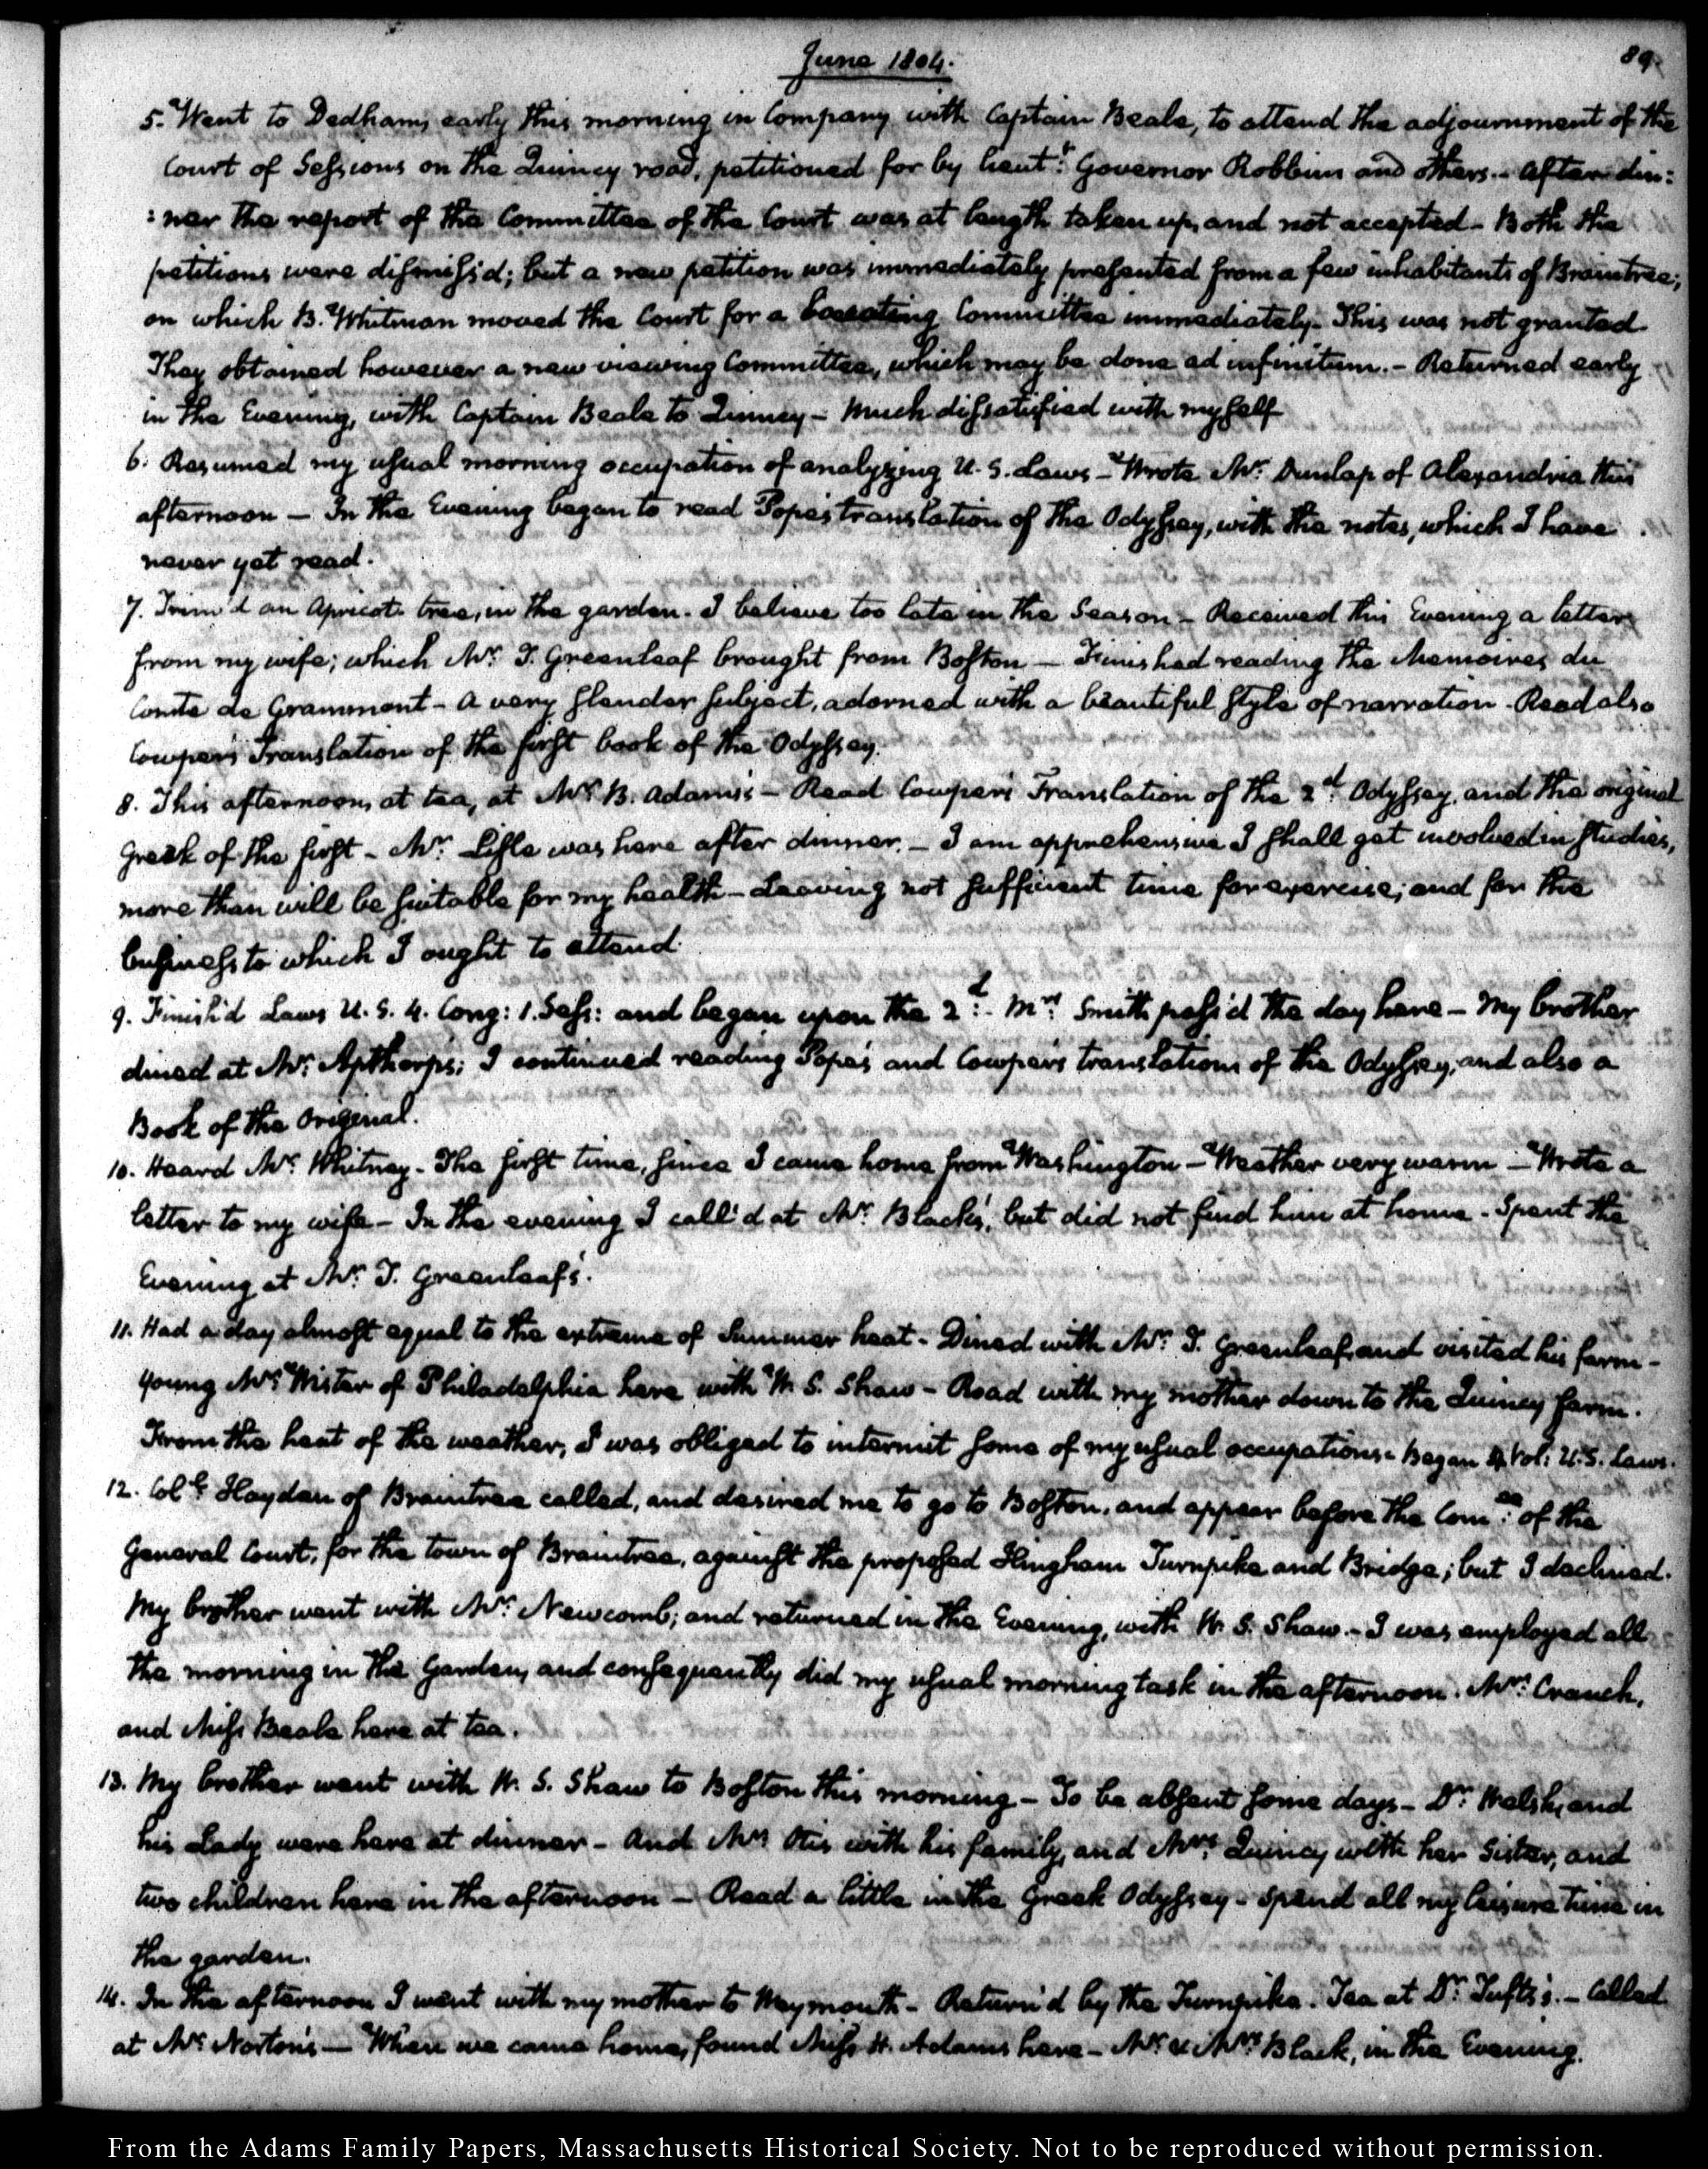 June 1804.
89.
5. Went to Dedham, early this morning in Company with Captain Beale, to attend the adjournment of the
Court of Sessions on the Quincy road, petitioned for by Lieut.t Governor Robbins and others.- After din:
:ner the report of the Committee of the Court was at length taken up, and not accepted- Both the
petitions were dismiss'd; but a new petition was immediately presented from a few inhabitants of Braintree;
on which B. Whitman moved the Court for a locating Committee immediately- This was not granted-
They obtained however a new viewing Committee, which may be done ad infinitum.- Returned early
in the Evening, with Captain Beale to Quincy- Much dissatisfied with myself
6. Resumed my usual morning occupation of analyzing U. S. Laws- Wrote Mr. Dunlap of Alexandria this
afternoon — In the Evening began to read Pope's translation of the Odyssey, with the notes, which I have
never yet read.
7. Trim'd an Apricot tree, in the garden. I believe too late in the Season- Received this Evening a letter
from my wife; which Mr. T. Greenleaf brought from Boston — Finished reading the Memoires du
Comte de Grammont- A very slender subject, adorned with a beautiful style of narration. Read also
Cowper's Translation of the first book of the Odyssey.
8. This afternoon, at tea, at Mrs. B. Adams's- Read Cowper's Translation of the 2d. Odyssey, and the original
Greek of the first- Mr. Lisle was here after dinner.- I am apprehensive I shall get involved in studies,
more than will be suitable for my health- Leaving not sufficient time for exercise; and for the
business to which I ought to attend.
9. Finish'd Laws U. S. 4. Cong: 1. Sess: and began upon the 2d:- Mrs. Smith pass'd the day here- My brother
dined at Mr. Apthorp's; I continued reading Pope's and Cowper's translations of the Odyssey, and also a
Book of the Original.
10. Heard Mr. Whitney- The first time, since I came home from Washington- Weather very warm- Wrote a
letter to my wife- In the evening I call'd at Mr. Black's, but did not find him at home. Spent the
Evening at Mr. T. Greenleaf's.
11. Had a day almost equal to the extreme of Summer heat- Dined with Mr. T. Greenleaf, and visited his farm-
Young Mr. Wister of Philadelphia here with W. S. Shaw- Road with my mother down to the Quincy farm.
From the heat of the weather, I was obliged to intermit some of my usual occupations- Began 4 Vol: U.S. Laws.
12. Coll. Hayden of Braintree called, and desired me to go to Boston, and appear before the Comee: of the
General Court, for the town of Braintree, against the proposed Hingham Turnpike and Bridge; but I declined.
My brother went with Mr. Newcomb; and returned in the Evening, with W. S. Shaw.- I was employed all
the morning in the Garden, and consequently did my usual morning task in the afternoon. Mrs. Cranch,
and Miss Beale here at tea.
13. My brother went with W. S. Shaw to Boston this morning- To be absent some days- Dr. Welsh, and
his Lady were here at dinner- And Mr. Otis with his family, and Mrs. Quincy with her Sister, and
two children here in the afternoon- Read a little in the Greek Odyssey- Spend all my leisure time in
the garden.
14. In the afternoon I went with my mother to Weymouth- Return'd by the Turnpike. Tea at Dr. Tufts's.- Called
at Mr. Norton's — When we came home, found Miss H. Adams here- Mr. & Mrs. Black, in the Evening.
From the Adams Family Papers, Massachusetts Historical Society. Not to be reproduced without permission.